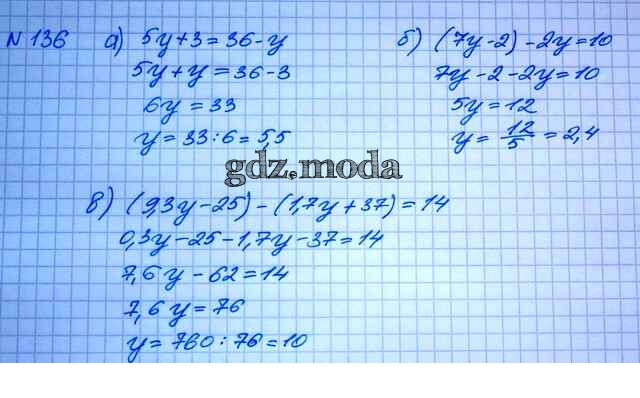 N 136 а) 5y+3=36-y
5y+y=36-3
6y=33
y=33:6=5,5
б) (7y-2)-2y=10
7y-2-2y=10
5y=12
y=12/5=2,4
gdz.moda
в) (9,3y-25)-(1,7y+37)=14
0,3y-25-1,7y-37=14
7,6y-62=14
7,6y=76
y=760:76=10